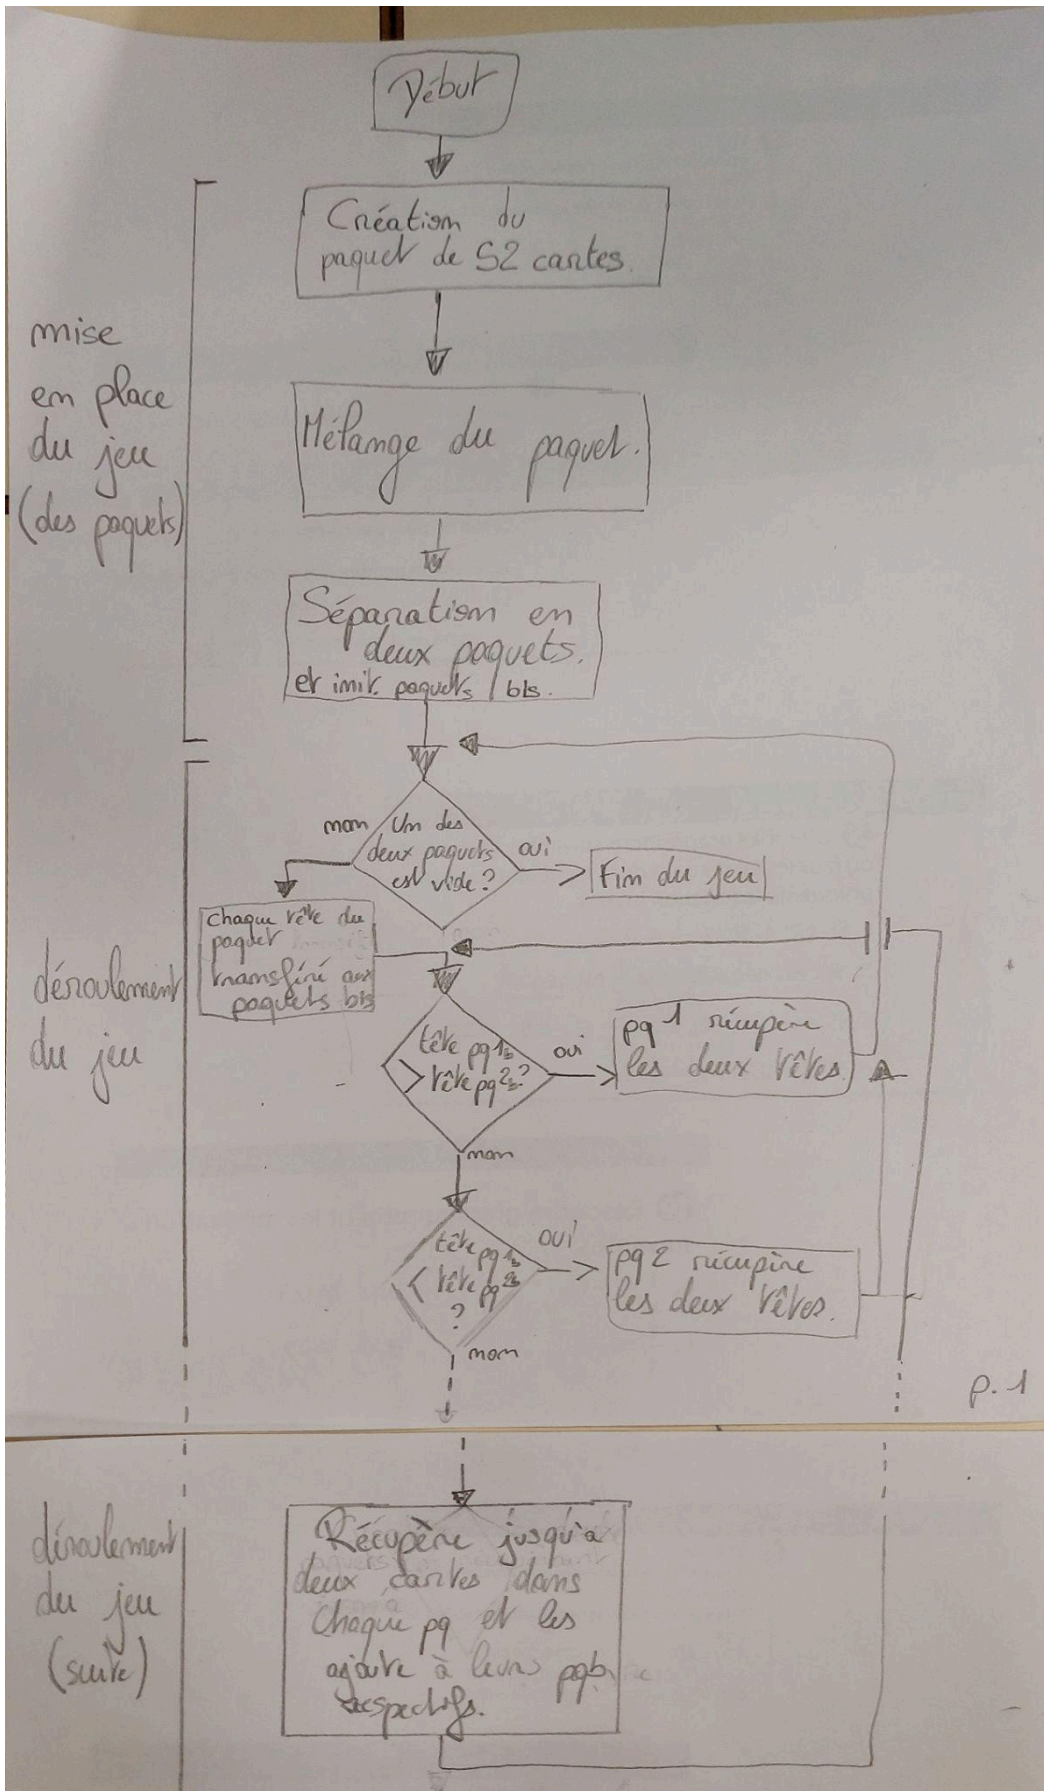 Début
Création du
paquet de 52 cartes.
mise
en place
du jeu
(des paquets)
Mélange du paquet.
Séparation en
deux paquets.
et init. paquets bis.
non
Un des
deux paquets
est vide?
oui
Fin du jeu
Chaque tête du
paquet
transféré aux
paquets bis
déroulement
du jeu
tête pq1b
> tête pq2b?
oui
pq 1 récupère
les deux têtes.
non
tête pq1b
< tête pq2b
?
oui
pq 2 récupère
les deux têtes.
non
p. 1
déroulement
du jeu
(suite)
Récupère jusqu'à
deux cartes dans
chaque pq et les
ajoute à leurs pqb
respectifs.